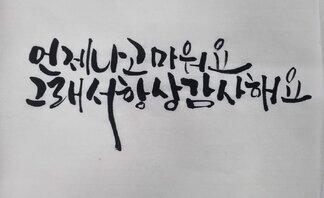 언제나 고마워요
그래서 항상 감사해요